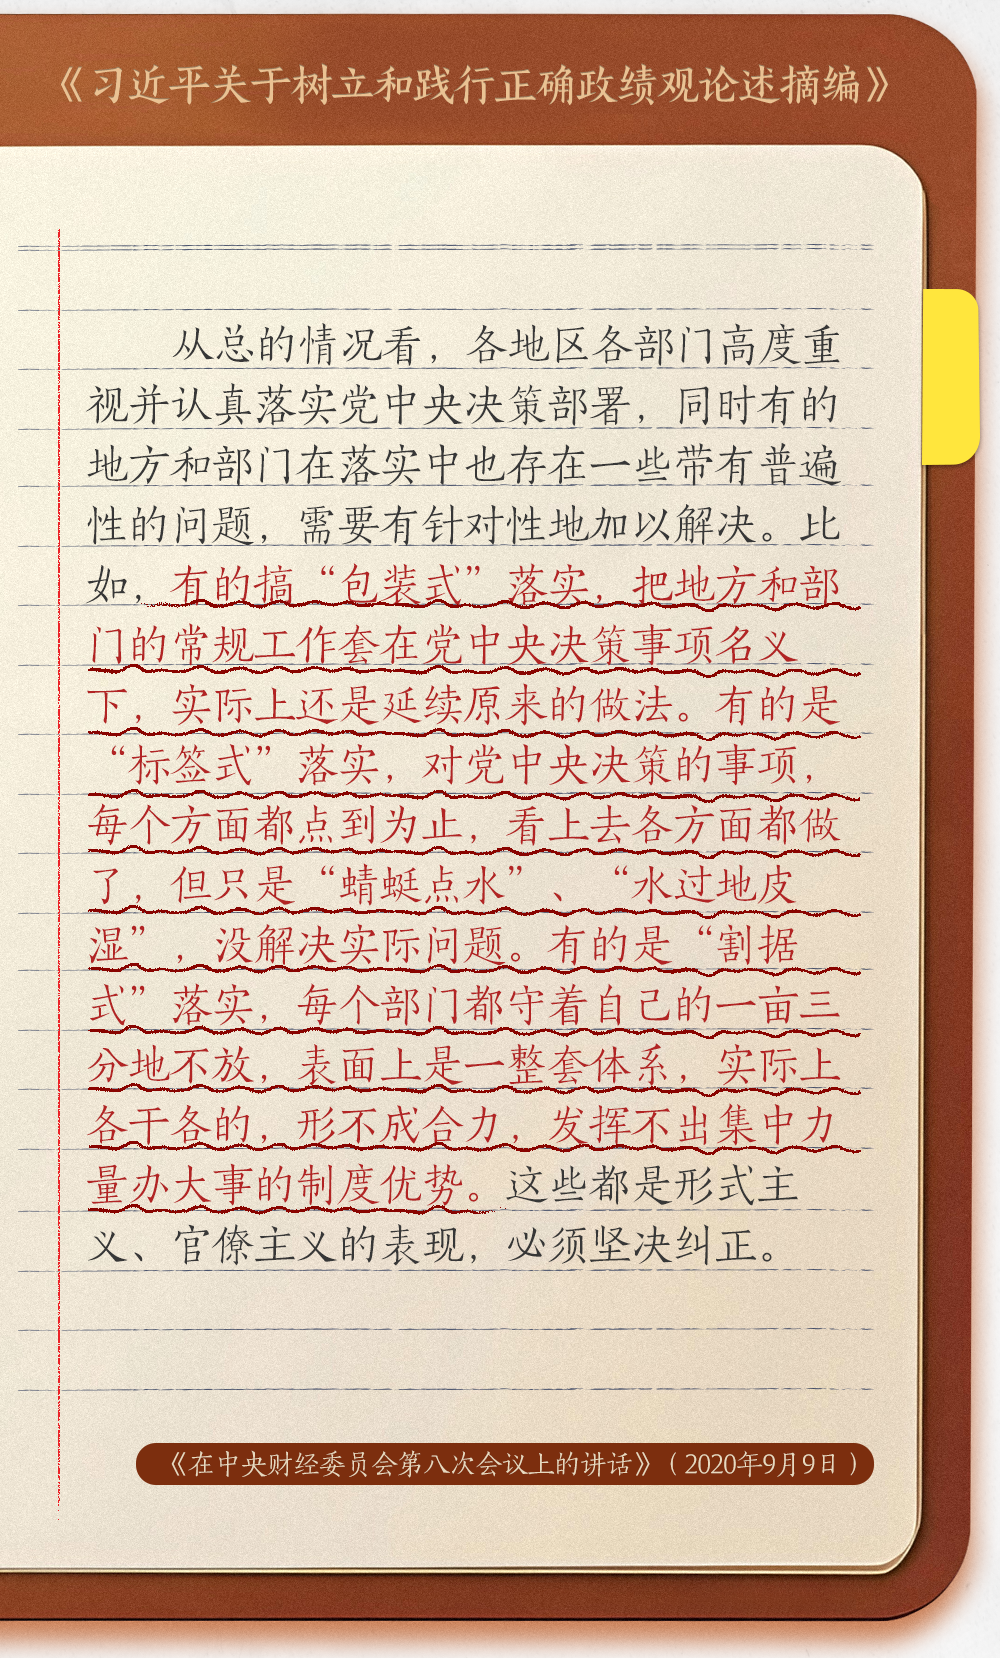 《习近平关于树立和践行正确政绩观论述摘编》
从总的情况看，各地区各部门高度重
视并认真落实党中央决策部署，同时有的
地方和部门在落实中也存在一些带有普遍
性的问题，需要有针对性地加以解决。比
如，有的搞“包装式”落实，把地方和部
门的常规工作套在党中央决策事项名义
下，实际上还是延续原来的做法。有的是
“标签式”落实，对党中央决策的事项，
每个方面都点到为止，看上去各方面都做
了，但只是“蜻蜓点水”、“水过地皮
湿”，没解决实际问题。有的是“割据
式”落实，每个部门都守着自己的一亩三
分地不放，表面上是一整套体系，实际上
各干各的，形不成合力，发挥不出集中力
量办大事的制度优势。这些都是形式主
义、官僚主义的表现，必须坚决纠正。
《在中央财经委员会第八次会议上的讲话》（2020年9月9日）